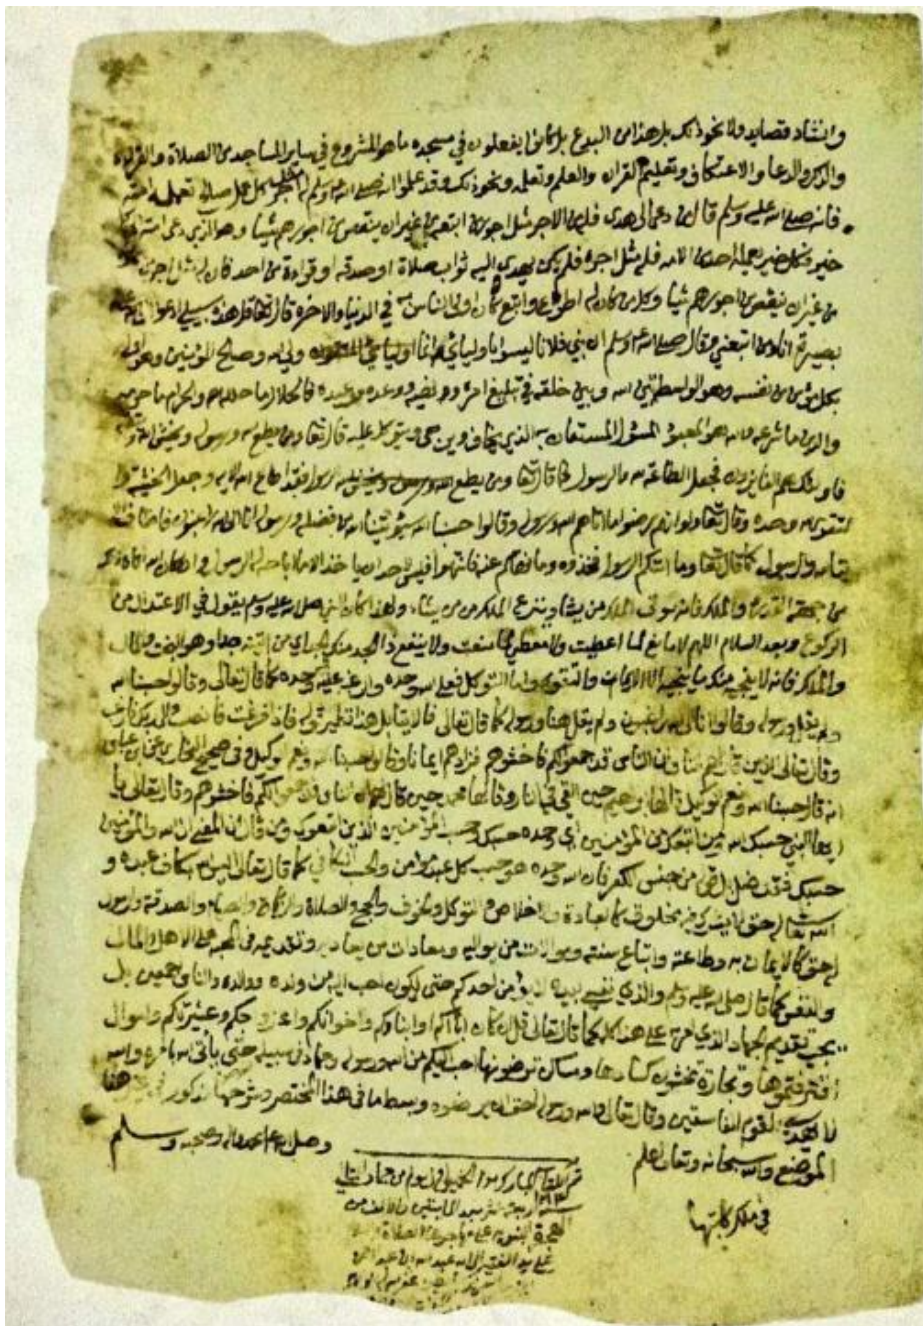 وانشاد قصايد ولا نحو ذلك بل هذا من البدع بل كانوا يفعلون في مسجده ما هو المشروع في ساير المساجد من الصلاة والقراءة
والذكر والدعا والاعتكاف وتعليم القران والعلم وتعلمه ونحو ذلك وقد علموا ان النبي صلى الله عليه وسلم له مثل اجر كل عمل صالح تعمله امته
فانه صلى الله عليه وسلم قال من دعا الى هدى فله من الاجر مثل اجور من اتبعه من غير ان ينقص من اجورهم شيا وهو الذي دعى امته الى كل
خير وكل خير يعمله احد من الامه فله مثل اجره فلم يكن يهدي اليه ثواب صلاة او صدقه او قراءة من احد فان له مثل اجر
من غير ان ينقص من اجورهم شيا وكل من كان له اطوع واتبع كان اولى الناس به في الدنيا والاخره قال تعالى قل هذه سبيلي ادعوا الى الله على
بصيرة انا ومن اتبعني وقال صلى الله عليه وسلم ان بني فلان ليسوا لي باولياء انما وليي الله وصالح المؤمنين وهو اولى
بكل مؤمن من نفسه وهو الواسطة بين الله وبين خلقه في تبليغ امره ونهيه ووعده ووعيده فالحلال ما حلله والحرام ما حرمه
والدين ما شرعه والله هو المعبود المسئول المستعان به الذي يخاف ويرجى ويتوكل عليه قال تعالى ومن يطع الله ورسوله ويخش الله ويتقه
فاولئك هم الفايزون فجعل الطاعة لله والرسول كما قال تعالى ومن يطع الرسول فقد اطاع الله وجعل الخشية و
التقوى لله وحده وقال تعالى ولو انهم رضوا ما اتاهم الله ورسوله وقالوا حسبنا الله سيؤتينا الله من فضله ورسوله انا الى الله راغبون فاضاف
الايتاء لله والرسول كما قال تعالى وما اتاكم الرسول فخذوه وما نهاكم عنه فانتهوا فليس لاحد ان ياخذ الا ما اباحه الرسول وان كان الله اتاه ذلك
من جهة القدرة والملك فانه يوتى الملك من يشاء وينزع الملك ممن يشاء ولهذا كان النبي صلى الله عليه وسلم يقول في الاعتدال من
الركوع وبعد السلام اللهم لا مانع لما اعطيت ولا معطي لما منعت ولا ينفع ذا الجد منك الجد اي من اتيته جدا وهو البخت والمال
والملك فانه لا ينجيه منك ما ينجيه الا الايمان والتقوى واما التوكل فعلى الله وحده والرغبة اليه وحده كما قال تعالى وقالوا حسبنا الله
ولم يقل ورسوله وقالوا انا الى الله راغبون ولم يقل هنا ورسوله كما قال تعالى هذا نظير قوله فاذا فرغت فانصب والى ربك فارغب
وقال تعالى الذين قال لهم الناس ان الناس قد جمعوا لكم فاخشوهم فزادهم ايمانا وقالوا حسبنا الله ونعم الوكيل وفي صحيح البخاري عن ابن عباس
انه قال حسبنا الله ونعم الوكيل قالها ابراهيم حين القي في النار وقالها محمد حين قال لهم الناس ان الناس قد جمعوا لكم فاخشوهم وقال تعالى يا
ايها النبي حسبك الله ومن اتبعك من المؤمنين اي وحده حسبك وحسب المؤمنين الذين اتبعوك ومن قال ان المعنى ان الله والمؤمنين
حسبك فقد ضل بل قوله من جنس الكفر فان الله وحده هو حسب كل عبد مؤمن والحسب الكافي كما قال تعالى اليس الله بكاف عبده و
لله تعالى حق لا يشركه فيه مخلوق كالعبادة والاخلاص والتوكل والخوف والحج والصلاة والزكاة والصيام والصدقة والرسول
له حق كالايمان به وطاعته واتباع سنته وموالات من يواليه ومعادات من يعاديه وتقديمه في المحبه على الاهل والمال
والنفس كما قال صلى الله عليه وسلم والذي نفسي بيده لا يؤمن احدكم حتى اكون احب اليه من ولده ووالده والناس اجمعين بل
يجب تقديم الجهاد الذي امر به على هذا كله كما قال تعالى قل ان كان اباؤكم وابناؤكم واخوانكم وازواجكم وعشيرتكم واموال
اقترفتموها وتجارة تخشون كسادها ومساكن ترضونها احب اليكم من الله ورسوله وجهاد في سبيله حتى ياتي الله بامره والله
لا يهدي القوم الفاسقين وقال تعالى والله ورسوله احق ان يرضوه وبسط ما في هذا المختصر وشرحه مذكور في غير هذا
الموضع والله سبحانه وتعالى اعلم وصلى الله على محمد واله وصحبه وسلم
في ملك كاتبها
الهجرة النبوية على مهاجرها الصلاة
على يد الفقير الى الله عبد الله بن عبد